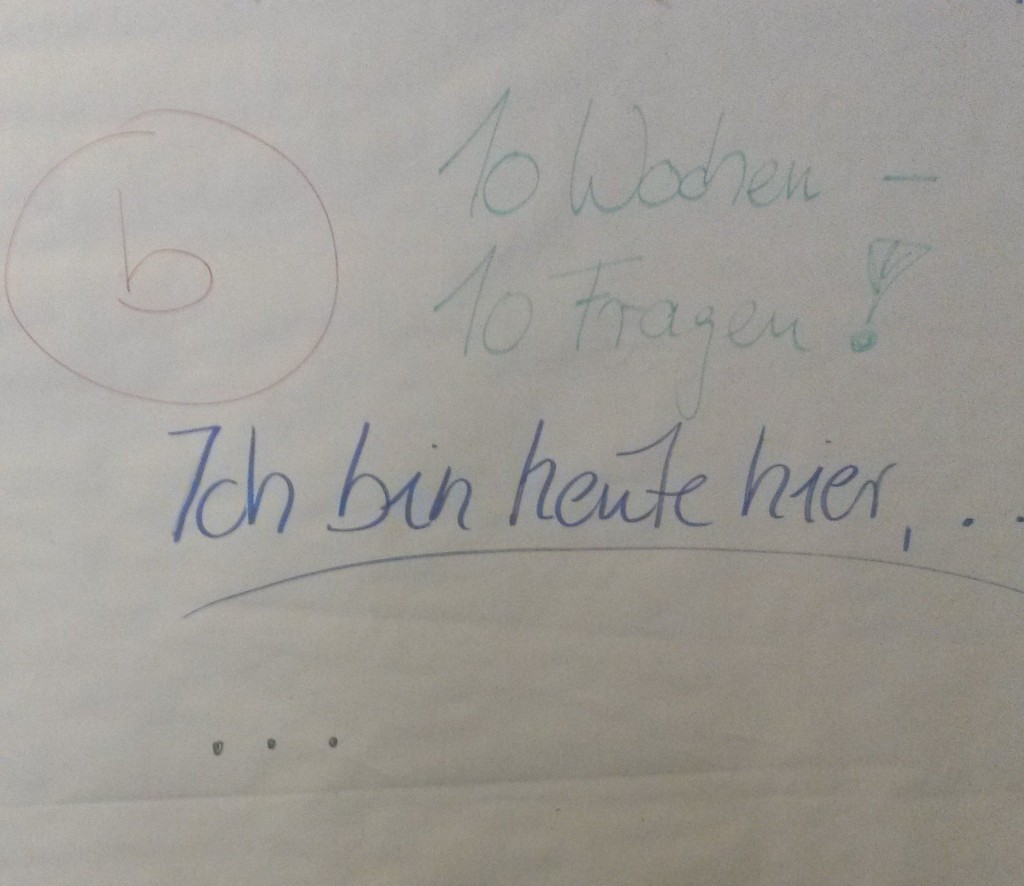 b
10 Wochen –
10 Fragen!
Ich bin heute hier, ..
...